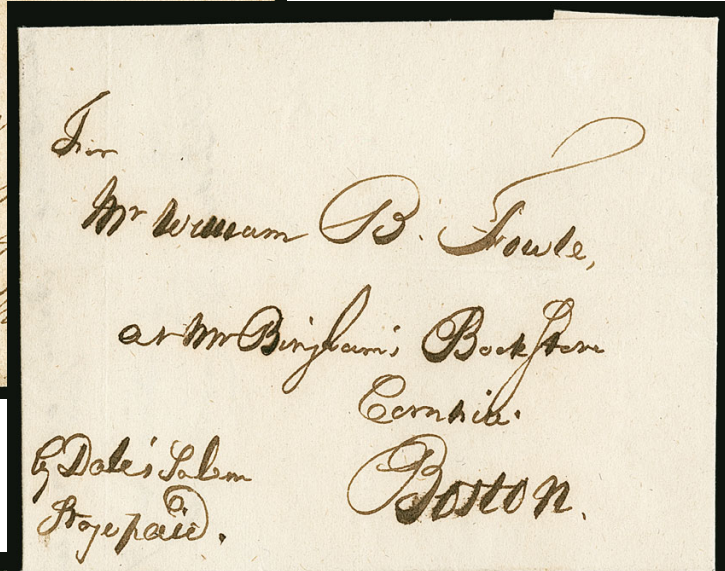 For
Mr William B. Fowle,
at Mr Bingham's Book Store
Cornhill.
Boston.
By Dale's Salem
Stage paid.